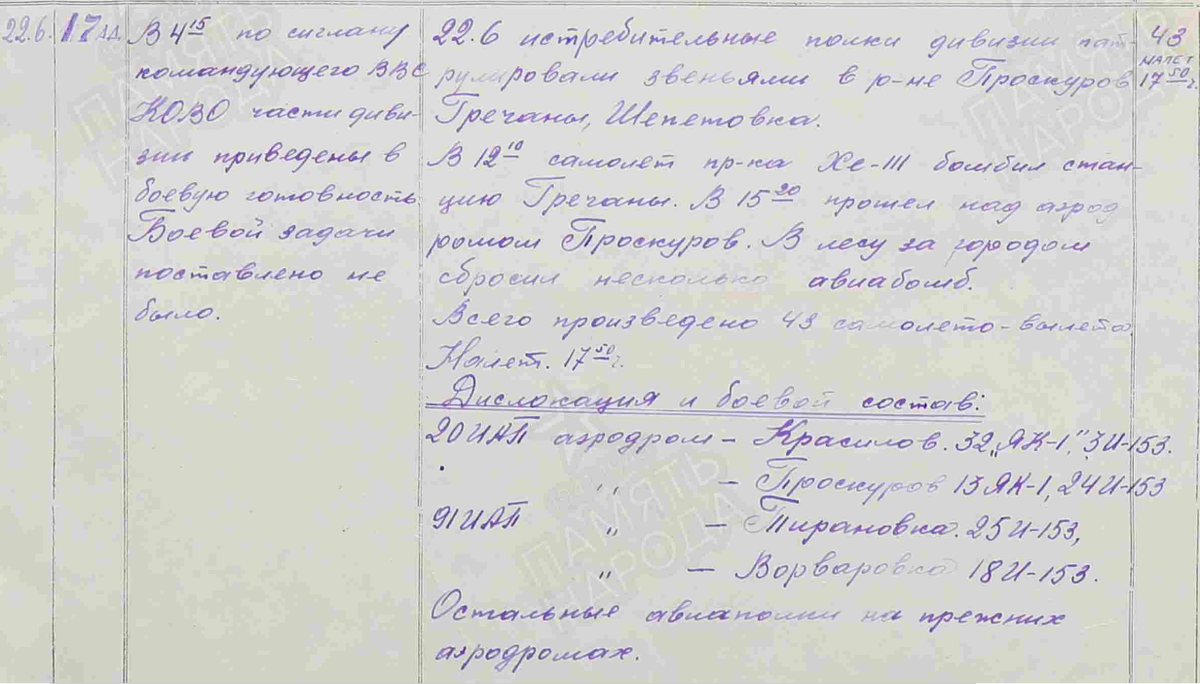 22.6. 17 АД.
В 4¹⁵ по сигналу
командующего ВВС
КОВО части диви-
зии приведены в
боевую готовность.
Боевой задачи
поставлено не
было.
22.6 истребительные полки дивизии пат-
рулировали звеньями в р-не Проскуров
Гречаны, Шепетовка.
В 12¹⁰ самолет пр-ка Хе-III бомбил стан-
цию Гречаны. В 15²⁰ прошел над аэрод
ромом Проскуров. В лесу за городом
сбросил несколько авиабомб.
Всего произведено 43 самолето-вылета.
Налет. 17⁵⁰ г.
Дислокация и боевой состав:
20 ИАП аэродром – Красилов. 32 „ЯК-1", 3 И-153.
" – Проскуров 13 ЯК-1, 24 И-153
91 ИАП " – Пирановка. 25 И-153,
" – Ворваровка 18 И-153.
Остальные авиаполки на прежних
аэродромах.
43
НАЛЕТ
17⁵⁰ г.
ПАМЯТЬ
НАРОДА
ПАМЯТЬ
НАРОДА
ПАМЯТЬ
НАРОДА